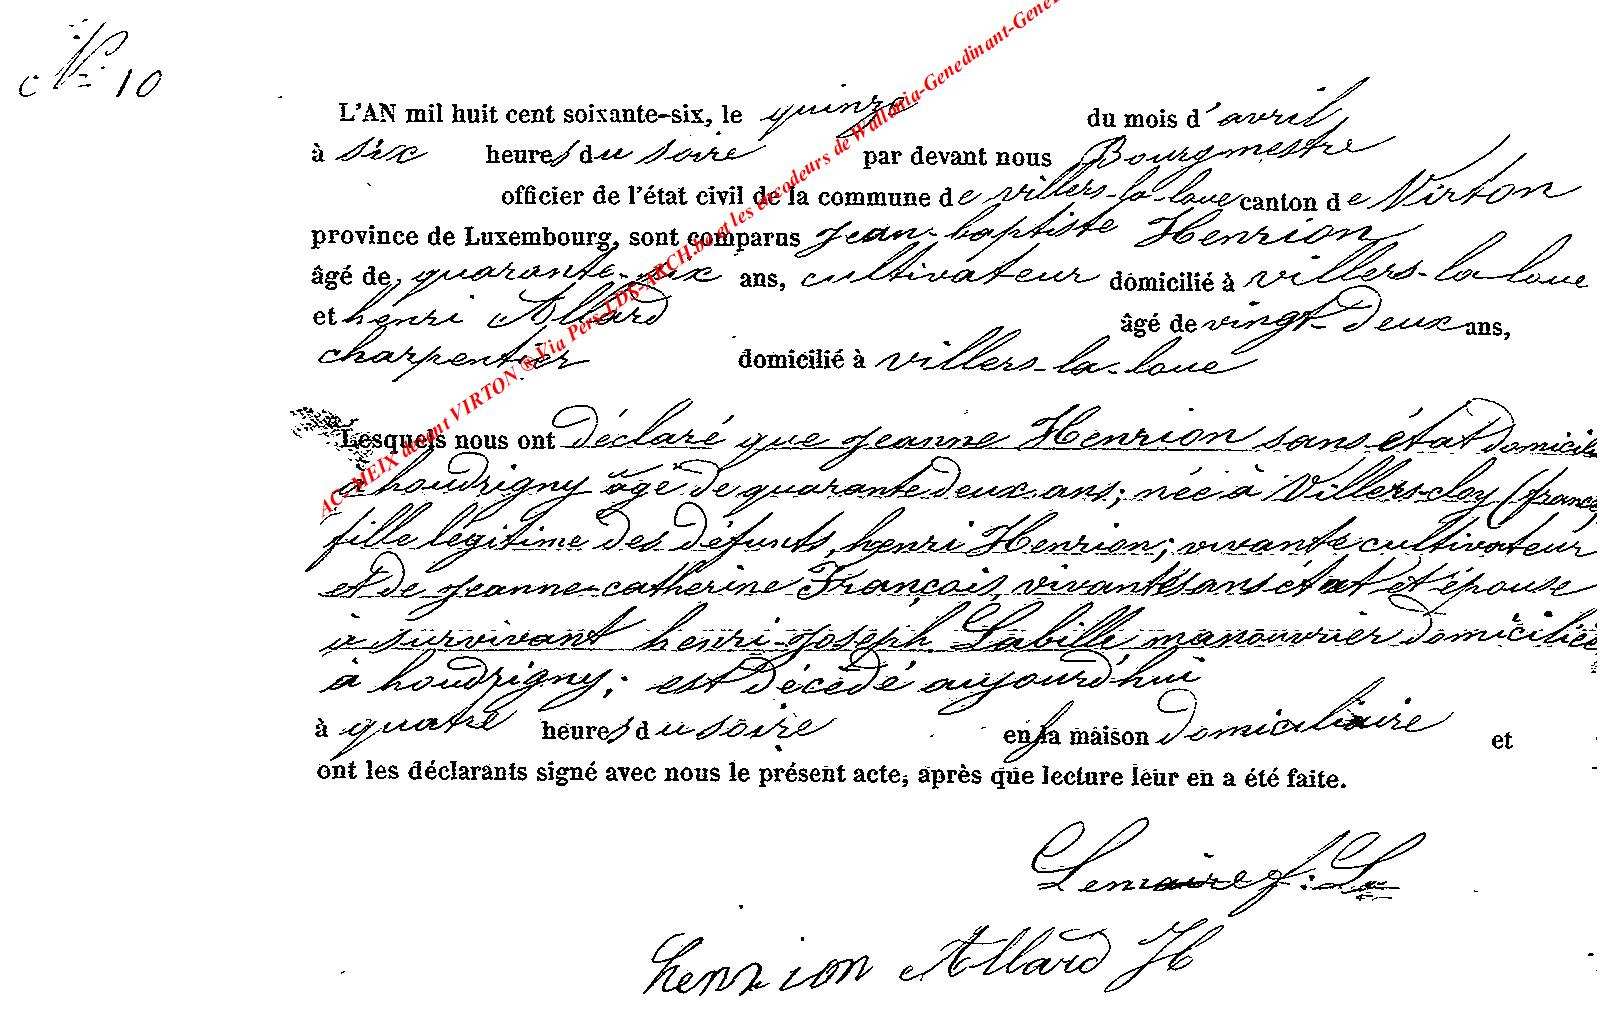 N° 10
L'AN mil huit cent soixante-six, le quinze du mois d'avril
à six heures du soire par devant nous Bourgmestre
officier de l'état civil de la commune de villers-la-loue canton de Virton
province de Luxembourg, sont comparus jean-baptiste Henrion
âgé de quarante-six ans, cultivateur domicilié à villers-la loue
et henri Allard âgé de vingt-deux ans,
charpentier domicilié à villers-la-loue
Lesquels nous ont déclaré que jeanne Henrion sans état domicile
à houdrigny âgé de quarante deux ans; née à Villers-cloy (france)
fille légitime des défunts, henri Henrion; vivante cultivateur
et de jeanne-catherine François, vivante sans état et épouse
à survivant henri-joseph Labille manouvrier domiciliée
à houdrigny; est décédé aujourd'hui
à quatre heures du soire en sa maison domiciliaire et
ont les déclarants signé avec nous le présent acte, après que lecture leur en a été faite.
Lemaire f: L
henrion Allard H
AC-MEIX devant VIRTON ® Via Pers-LDS-ARCH.be et les encodeurs de Wallonia-Genedinant-Gene